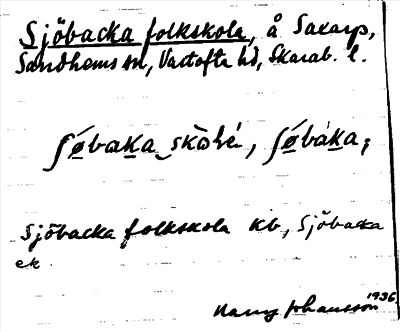 Sjöbacka folkskola, å Saxarp,
Sandhems sn, Vartofta hd, Skarab. l.
ʃǿbaka skòlé, ʃǿbàka;
Sjöbacka folkskola kb, Sjöbacka
ek
Harry Johansson 1936